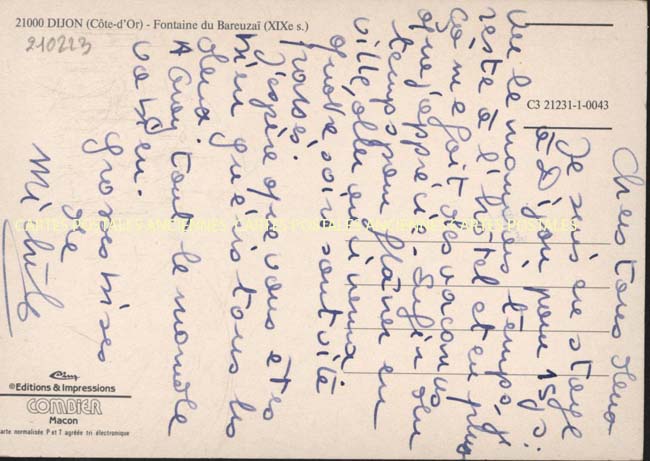 21000 DIJON (Côte-d'Or) - Fontaine du Bareuzaï (XIXe s.)
210223
C3 21231-1-0043
Chers tous deux
Je suis en stage
à Dijon pour 15 js.
Vu le mauvais temps, je
reste à l'hôtel et en plus
ça me fait des vacances
que j'apprécie. Enfin du
temps pour flâner en
ville,
quatre soirs sont vite
passés.
J'espère que vous êtes
bien guéris tous les
deux.
A Cuay tout le monde
va bien.
Grosses bises
de
Michèle
CARTES POSTALES ANCIENNES CARTES POSTALES ANCIENNES CARTES POSTALES
Cim
©Editions & Impressions
COMBIER
Macon
arte normalisée P et T agréée tri électronique